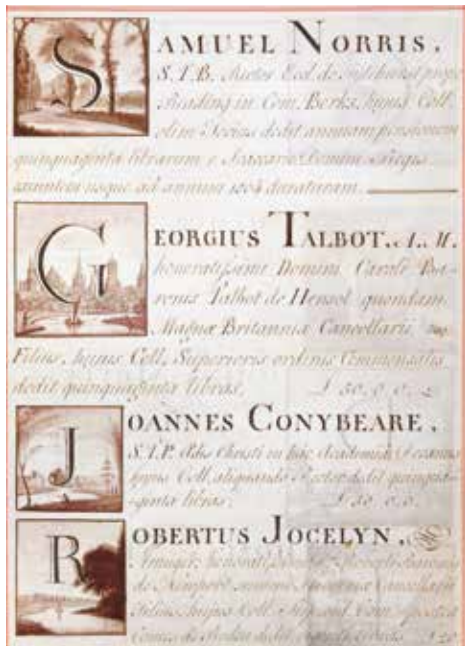 SAMUEL NORRIS,
S.T.B. Rector Eccl. de prope
Reading in Com. Berks, hujus Coll.
olim Socius dedit annuam pensionem
quinquaginta librarum e Scaccario Domini Regis
usque ad annum duraturam.
GEORGIUS TALBOT, A. M.
honoratissimi Domini Caroli Ba-
ronis Talbot de Hensol quondam
Magnæ Britanniæ Cancellarii
Filius, hujus Coll. Superioris ordinis Commensalis
dedit quinquaginta libras, £ 50. 0. 0.
JOANNES CONYBEARE,
S.T.P. Ædis Christi in hac Academia Decanus
hujus Coll. aliquando Rector dedit quinqua-
-ginta libras, £ 50. 0. 0.
ROBERTUS JOCELYN,
Armiger,
de Newport Cancellarii
Filius, hujus Coll.
Comes de dedit